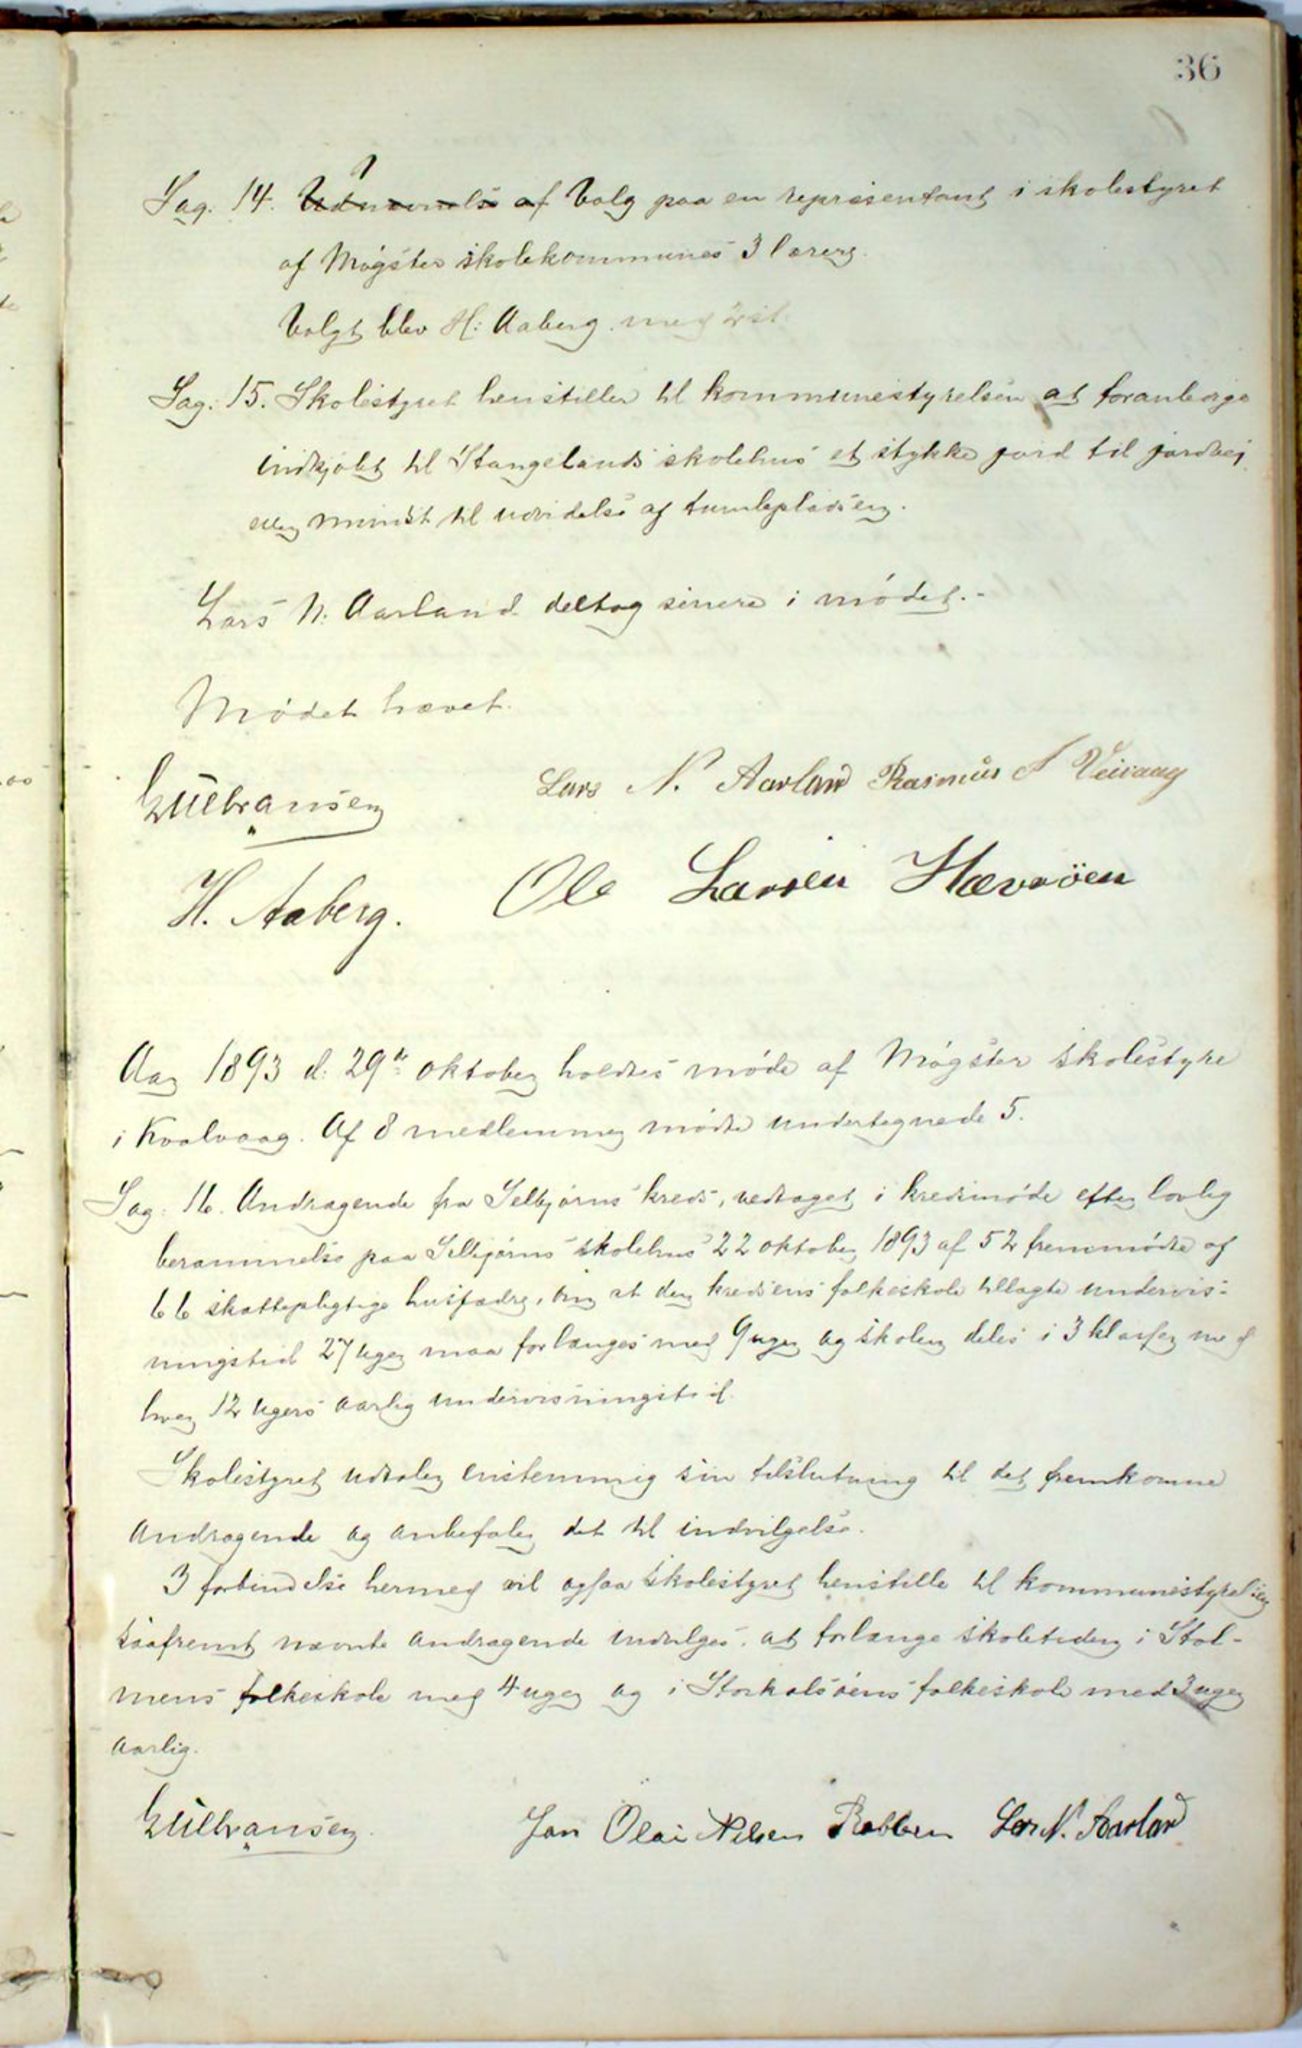 36
Sag. 14. Udnævnelse af Valg paa en repræsentant i skolestyret
af Møgster skolekommunes 3 lærere.
Valgt blev H: Aaberg med 2 st.
Sag: 15. Skolestyret henstiller til kommunestyrelsen at foranledige
indkjøbt til Stangelands skolehus et stykke jord til jordvei
eller mindst til udvidelse af tumlepladsen.
Lars N. Aarland deltog senere i mødet.-
Mødet hævet.
Gulbransen
Lars N. Aarland Rasmus A Veivaag
H. Aaberg.
Ole Larsen Hævrøen
Aar 1893 d: 29de oktober holdtes møde af Møgster skolestyre
i Kvalvaag. Af 8 medlemmer mødte undertegnede 5.
Sag: 16. Andragende fra Selbjørns kreds, vedtaget i kredsmøde efter lovlig
berammelse paa Selbjørns skolehus 22 oktober 1893 af 52 fremmødte af
66 skattepligtige husfædre, om at den kredsens folkeskole tillagte undervis-
ningstid 27 uger maa forlænges med 9 uger og skolen deles i 3 klasser med
hver 12 ugers aarlig undervisningstid.
Skolestyret udtaler enstemmig sin tilslutning til det fremkomne
andragende og anbefaler det til indvilgelse.
I forbindelse hermed vil ogsaa skolestyret henstille til kommunestyrelsen
saafremt nævnte andragende indvilges, at forlænge skoletiden i Stol-
mens folkeskole med 4 uger og i Storkalsøens folkeskole med 3 uger
aarlig.
Gulbransen
Jan Olai Nilsen Robben Lars N. Aarland